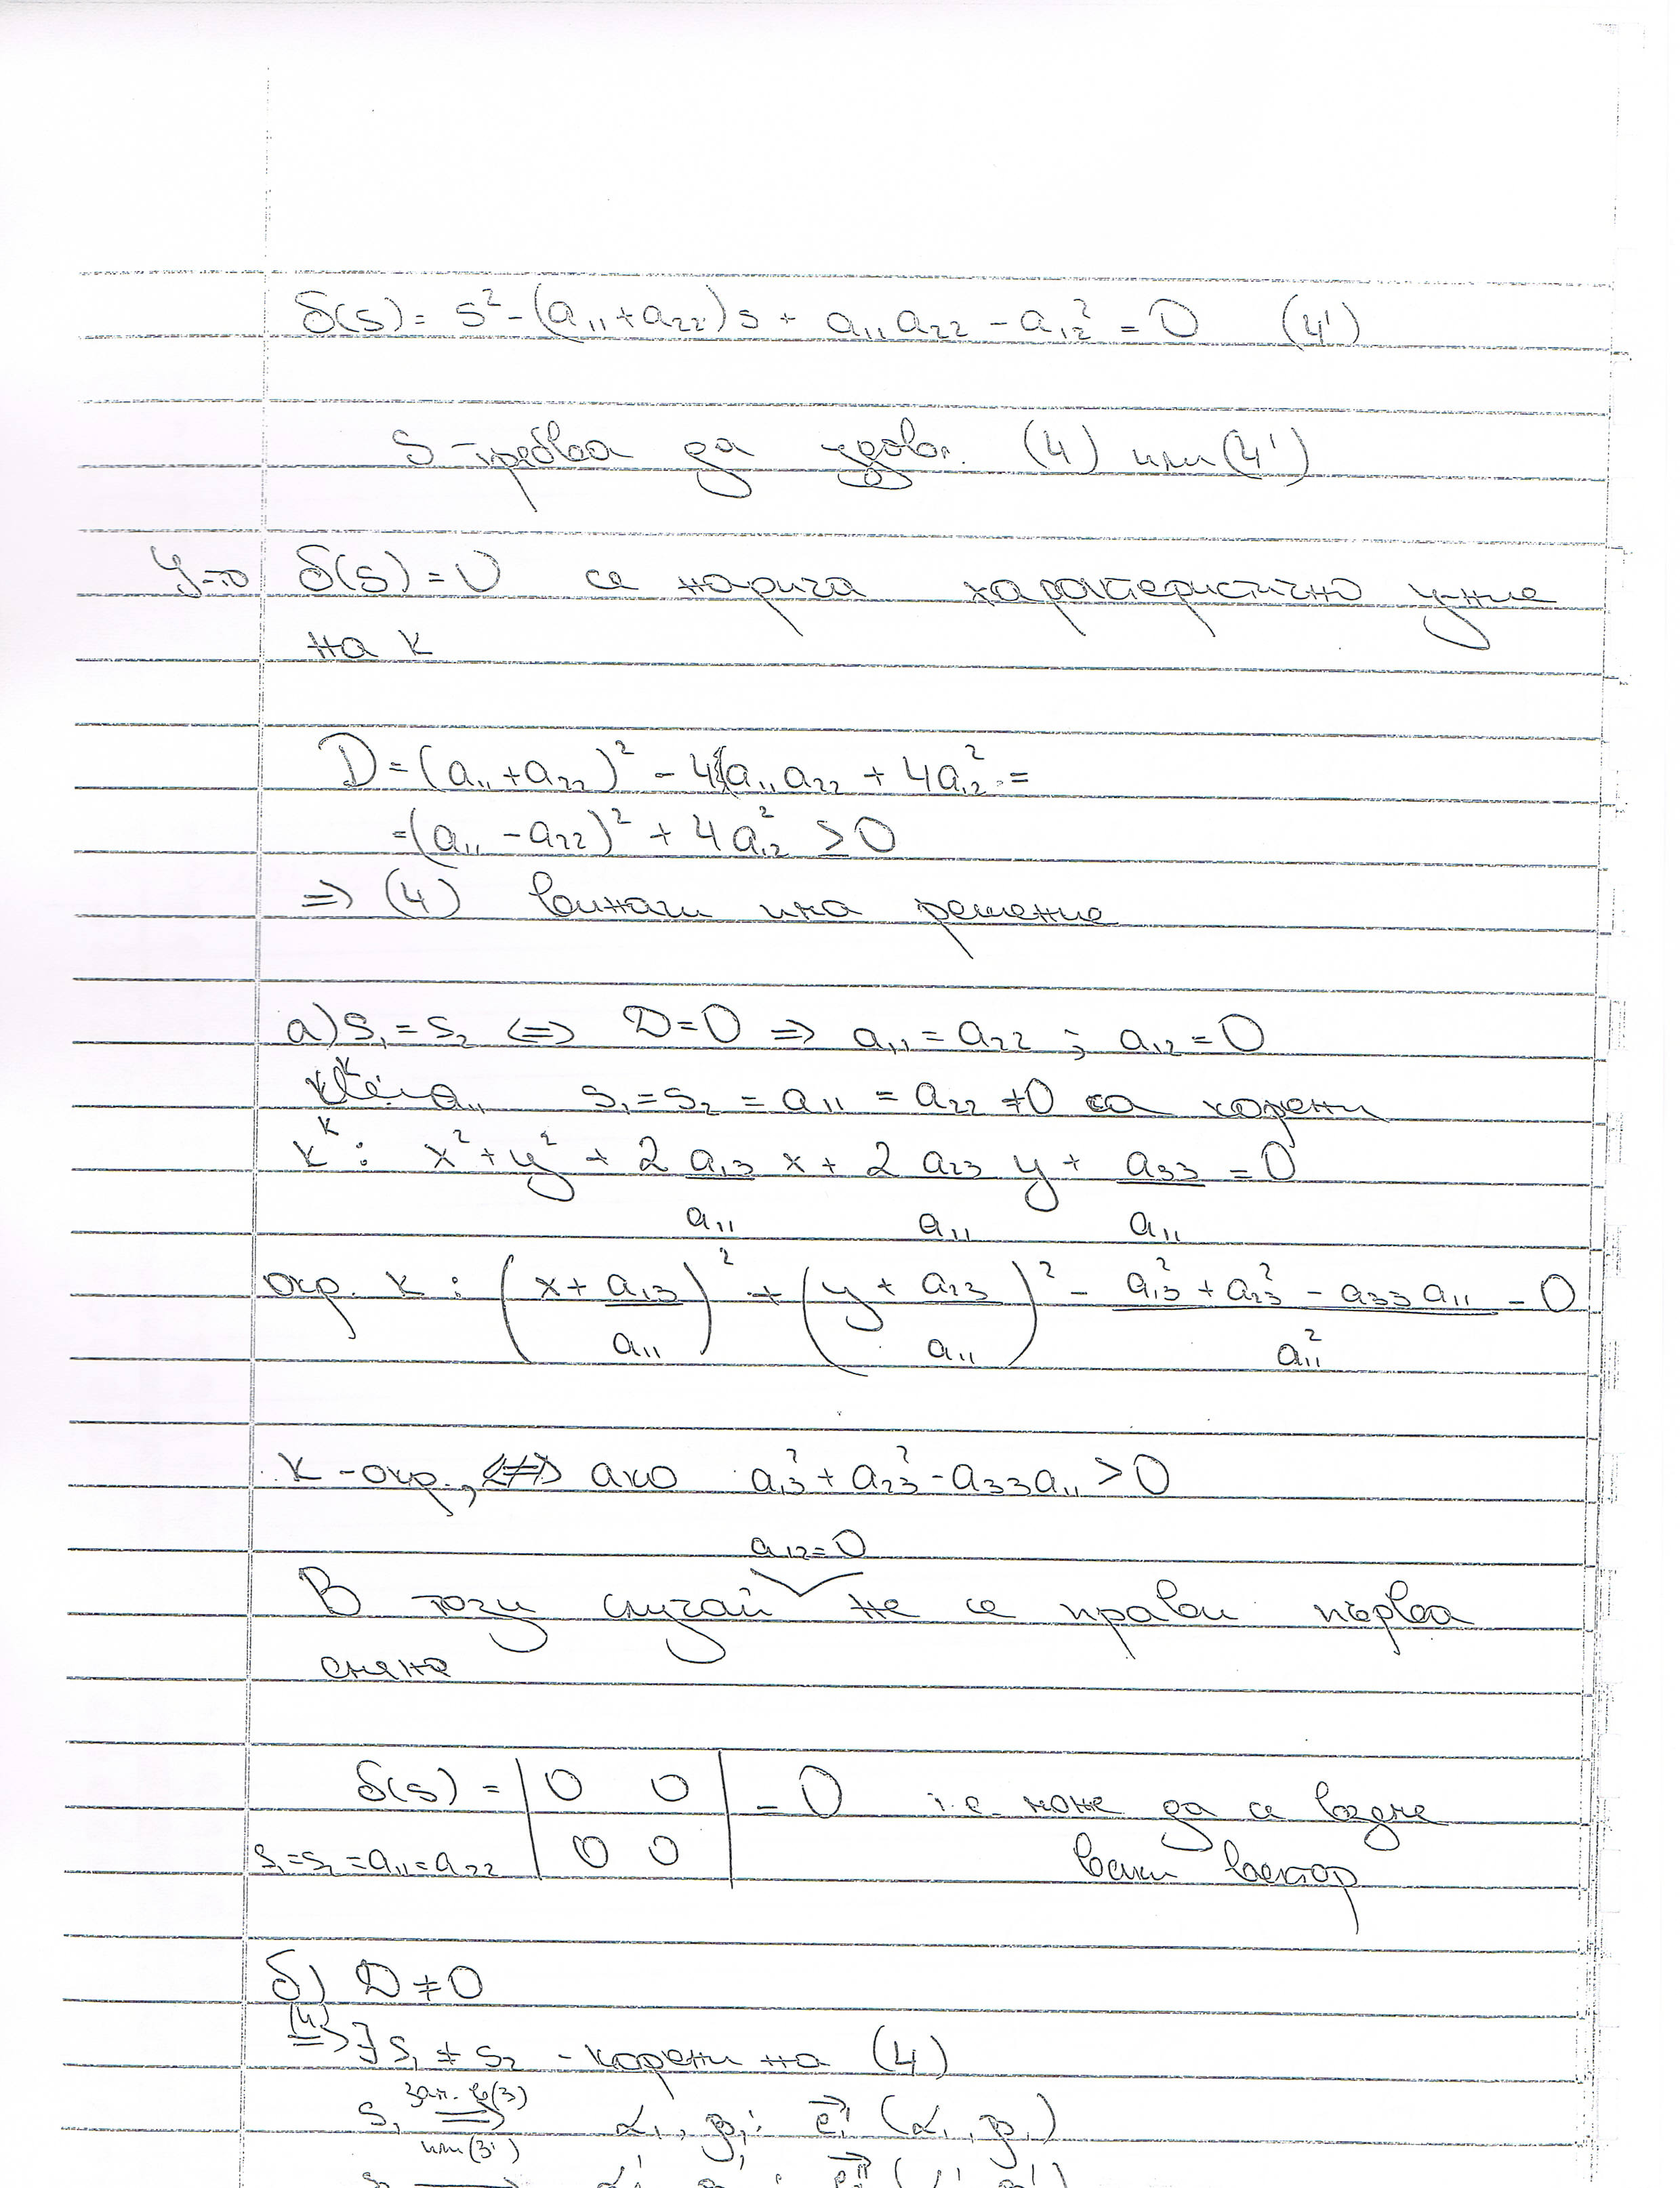 δ(s) = s² - (a₁₁ + a₂₂)s + a₁₁a₂₂ - a₁₂² = 0 (4')
s - трябва да удовл. (4) или (4')
У-то δ(s) = 0 се нарича характеристично у-ние
на K
D = (a₁₁ + a₂₂)² - 4a₁₁a₂₂ + 4a₁₂² =
= (a₁₁ - a₂₂)² + 4a₁₂² ≥ 0
⇒ (4) винаги има решение
а) s₁ = s₂ ⇔ D = 0 ⇒ a₁₁ = a₂₂ ; a₁₂ = 0
s₁ = s₂ = a₁₁ = a₂₂ ≠ 0 са корени
K : x² + y² + 2 a₁₃/a₁₁ x + 2 a₂₃/a₁₁ y + a₃₃/a₁₁ = 0
окр. K : (x + a₁₃/a₁₁)² + (y + a₂₃/a₁₁)² - (a₁₃² + a₂₃² - a₃₃a₁₁)/a₁₁² = 0
K - окр., ако a₁₃² + a₂₃² - a₃₃a₁₁ > 0
a₁₂ = 0
В този случай не се прави първа
смяна
δ(s) = | 0 0 | = 0 т.е. може да се вземе
s₁ = s₂ = a₁₁ = a₂₂ | 0 0 | всеки вектор
б) D ≠ 0
(4) ⇒ ∃ s₁ ≠ s₂ - корени на (4)
s₁ зам. в (3) ⇒ или (3') α₁, β₁ : e₁' (α₁, β₁)